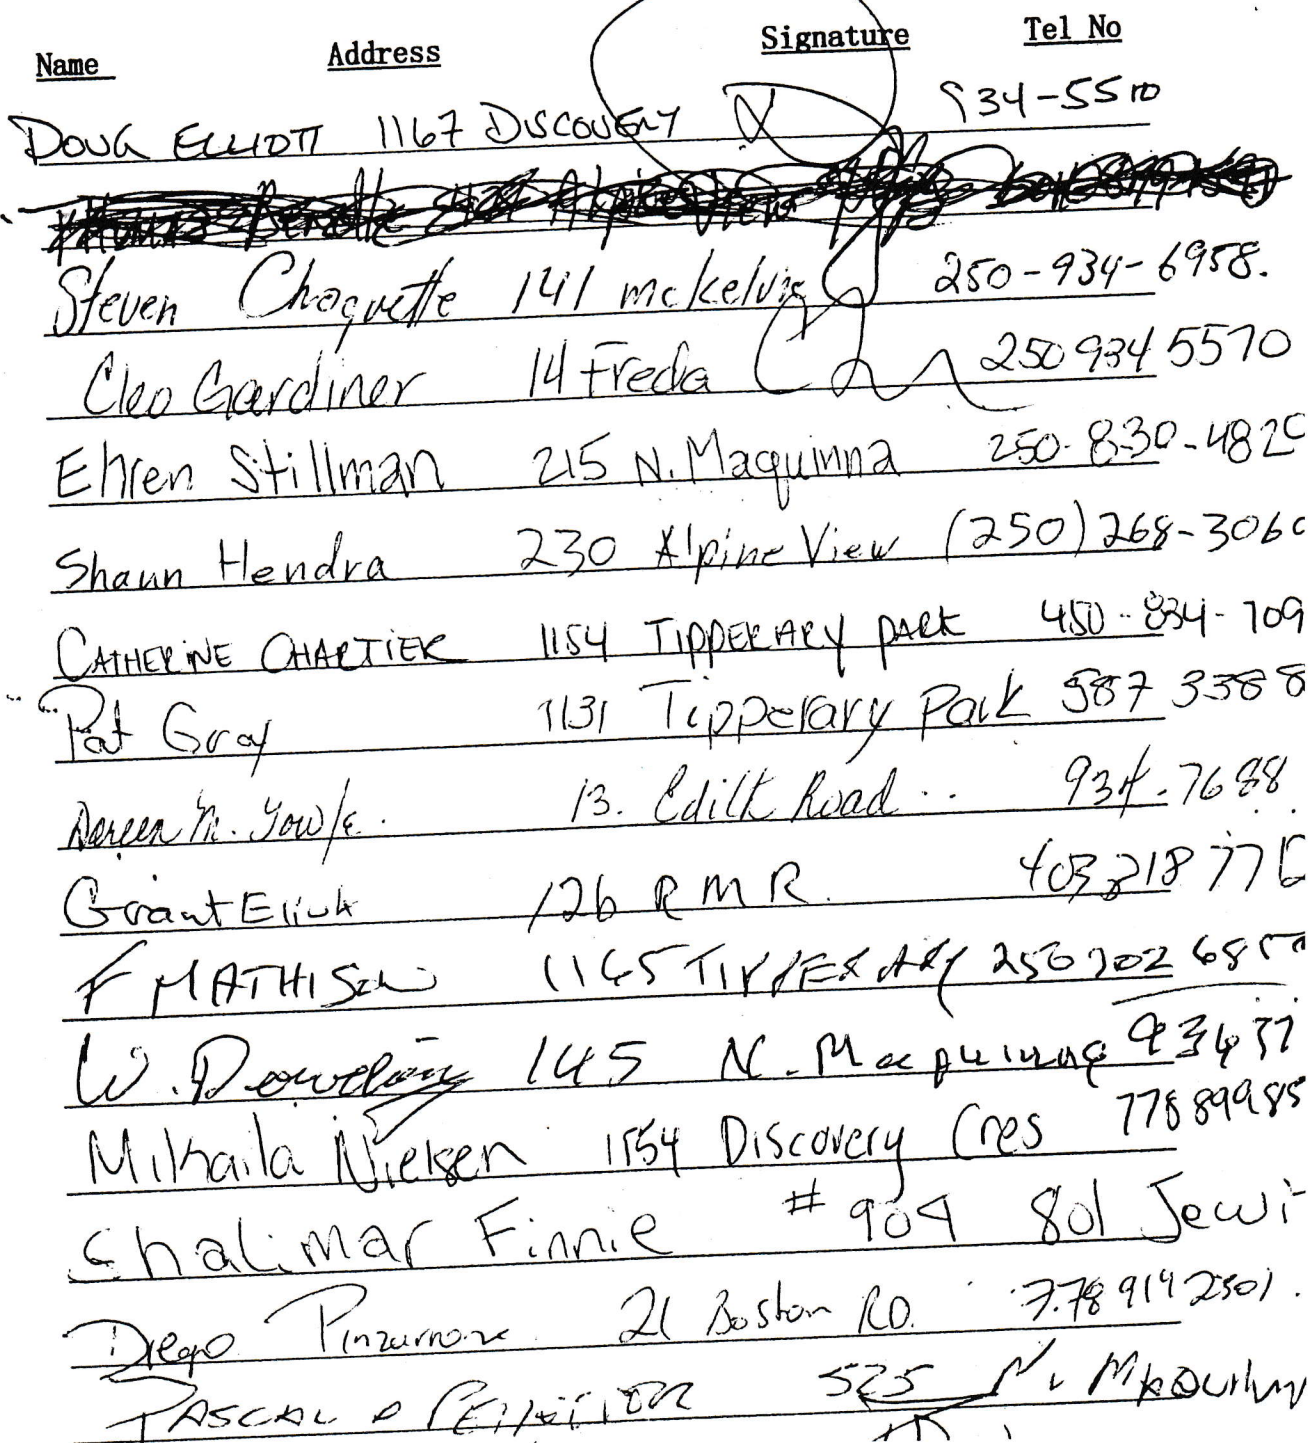 Name Address Signature Tel No
DOUG ELLIOTT 1167 DISCOVERY 934-5510
Steven Choquette 141 mckelvie 250-934-6958.
Cleo Gardiner 14 Freda 250 934 5570
Ehren Stillman 215 N. Maquinna 250-830-482
Shaun Hendra 230 Alpine View (250) 268-306
CATHERINE CHARTIER 1154 TIPPERARY PARK 450-834-709
Pat Gray 1131 Tipperary Park 587 3388
Doreen M. 13. Edith Road 934-7688
Grant 126 RMR. 403 218 77
F MATHISON 1165 TIPPERARY 250 202 685
W. Dowding 145 N. Macquinna 934 37
Mikhaila Nielsen 1154 Discovery Cres 778 89985
Shalimar Finnie # 904 801 Jewi
Diego 21 Boston RD. 778 914 2501.
PASCAL 525 N.